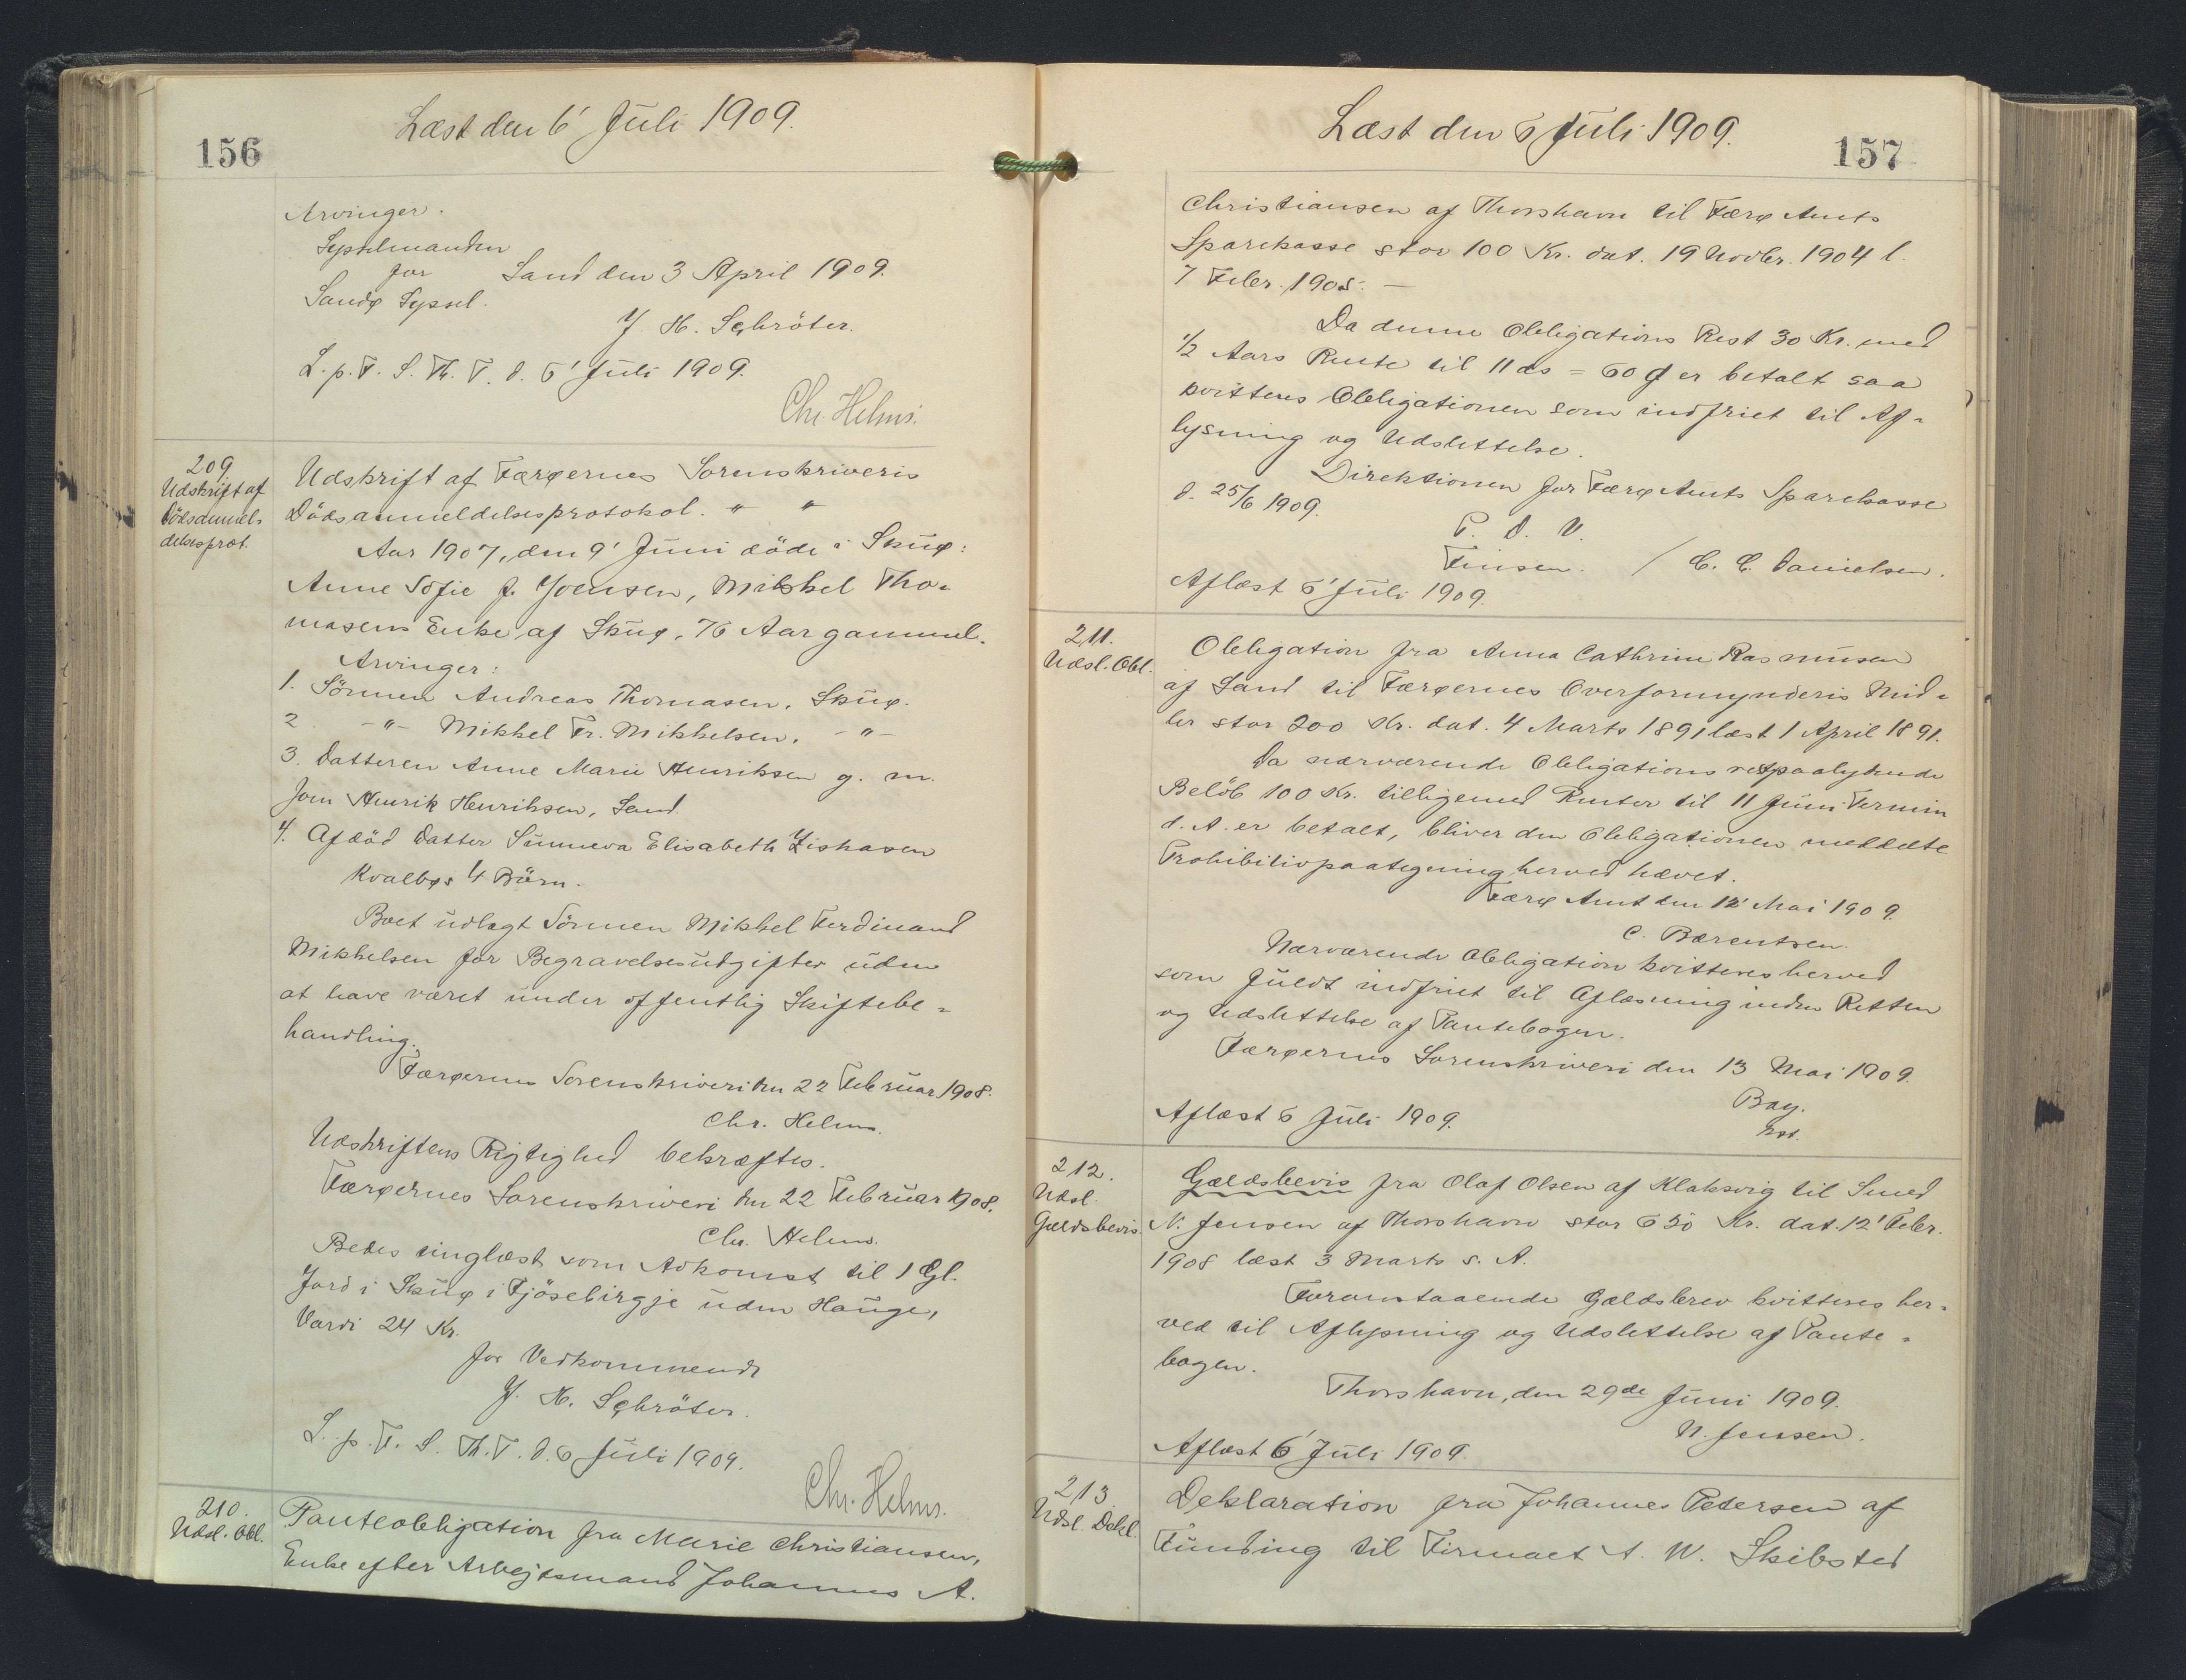 156
Læst den 6' Juli 1909.
Arvinger.
Sysselmanden
for
Sandø Syssel.
Sand den 3 April 1909.
J. H. Schröter.
L. p. F. S. Th. T. d. 6' Juli 1909.
Chr. Helms.
209
Udskrift af
Dödsanmel-
delsesprot.
Udskrift af Færøernes Sorenskriveris
Dödsanmeldelsesprotokol. " "
Aar 1907, den 9' Juni döde i Skuø:
Anne Sofie f. Joensen, Mikkel Tho-
masens Enke af Skuø, 76 Aar gammel.
Arvinger:
1. Sönnen Andreas Thomasen, Skuø.
2. -"- Mikkel Fr. Mikkelsen, -"-
3. Datteren Anne Marie Henriksen g. m.
Joen Henrik Henriksen, Sand.
4. Afdöd Datter Sunneva Elisabeth Ziskasen
Kvalbøs 4 Börn.
Boet udlagt Sönnen Mikkel Ferdinand
Mikkelsen for Begravelsesudgifter uden
at have været under offentlig Skiftebe-
handling.
Færøernes Sorenskriveri den 22 Februar 1908.
Chr. Helms.
Udskriftens Rigtighed bekræftes.
Færøernes Sorenskriveri den 22 Februar 1908.
Chr. Helms.
Bedes tinglæst som Adkomst til 1 Gl.
Jord i Skuø i Fjösebirgje uden Hauge,
Værdi 24 Kr.
for Vedkommende
J. H. Schröter.
L. p. F. S. Th. T. d. 6 Juli 1909.
Chr. Helms.
210.
Udsl. Obl.
Panteobligation fra Marie Christiansen,
Enke efter Arbejdsmand Johannes A.
157
Læst den 6 Juli 1909.
Christiansen af Thorshavn til Færø Amts
Sparekasse stor 100 Kr. dat. 19 Novbr. 1904 l.
7 Febr. 1905. —
Da denne Obligations Rest 30 Kr. med
1/2 Aars Rente til 11 ds = 60 Ø er betalt saa
kvitteres Obligationen som indfriet til Af-
lysning og Udslettelse.
Direktionen for Færø Amts Sparekasse
d. 25/6 1909.
P. D. V.
Finsen. / C. C. Danielsen.
Aflæst 6' Juli 1909.
211.
Udsl. Obl.
Obligation fra Anna Cathrine Rasmusen
af Sand til Færøernes Overformynderis Mid-
ler stor 200 Kr. dat. 4 Marts 1891 læst 1 April 1891.
Da nærværende Obligations restpaalydende
Belöb 100 Kr. tilligemed Renter til 11 Juni Termin
d. A. er betalt, bliver den Obligationen meddelte
Prohibitivpaategning herved hævet.
Færø Amt den 12' Mai 1909.
C. Bærentsen.
Nærværende Obligation kvitteres herved
som fuldt indfriet til Aflæsning inden Retten
og Udslettelse af Pantebogen.
Færøernes Sorenskriveri den 13 Mai 1909.
Bay.
kst.
Aflæst 6 Juli 1909.
212.
Udsl.
Gældsbevis.
Gældsbevis fra Olaf Olsen af Klaksvig til Smed
N. Jensen af Thorshavn stor 650 Kr. dat. 12' Febr.
1908 læst 3 Marts s. A.
Foranstaaende Gældsbrev kvitteres her-
ved til Aflysning og Udslettelse af Pante-
bogen.
Thorshavn, den 29de Juni 1909.
N. Jensen.
Aflæst 6' Juli 1909.
213
Udsl. Dekl.
Deklaration fra Johannes Pedersen af
Funding til Firmaet A. W. Skibsted